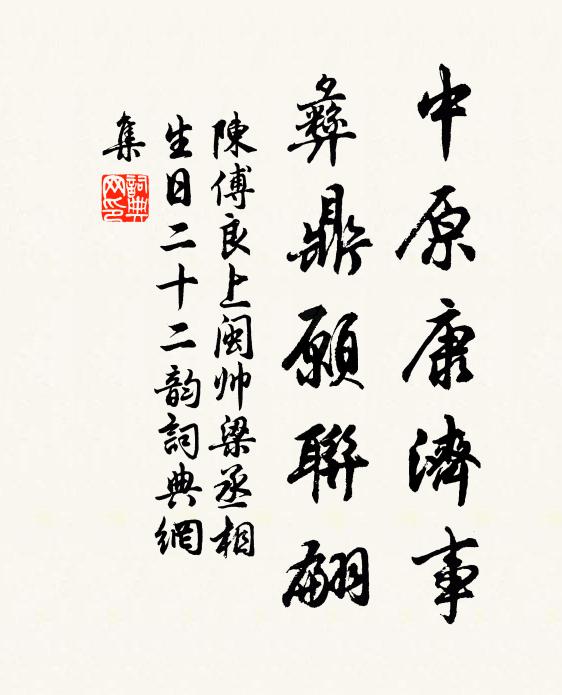 中原康濟事
彝鼎願聯翩
陳傅良上闽帅梁丞相
生日二十二韵詞典網
集
詞典
网印